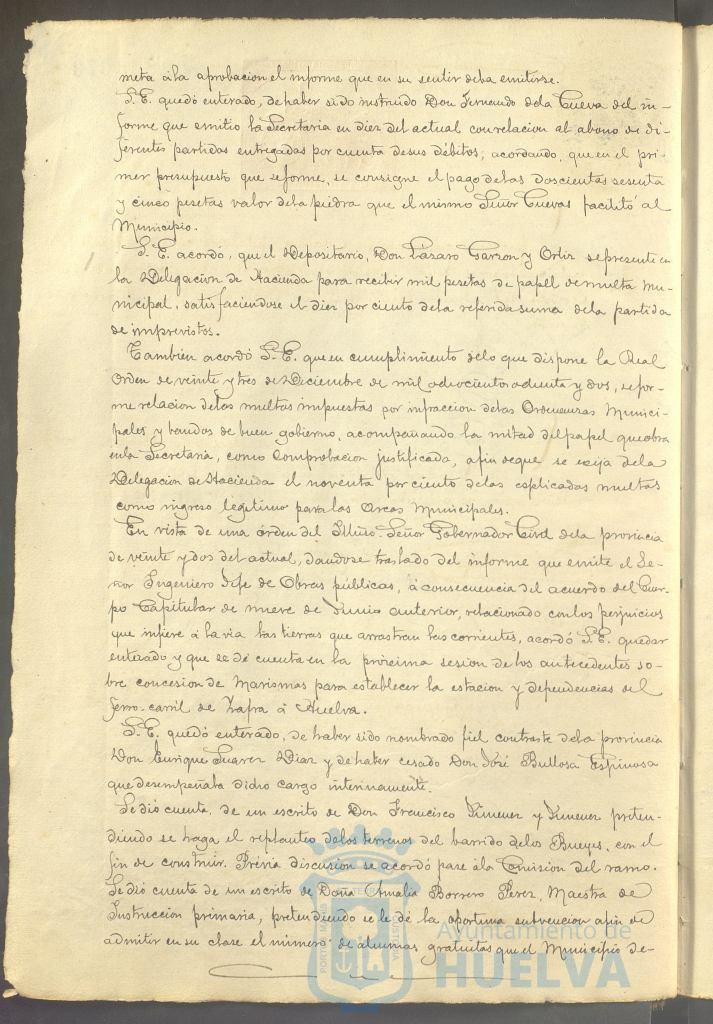 meta á la aprobacion el informe que en su sentir deba emitirse.
S.E. quedó enterado, de haber sido instruido Don Fernando de la Cueva del in-
forme que emitió la Secretaria en diez del actual con relacion al abono de di-
ferentes partidas entregadas por cuenta de sus débitos; acordando, que en el pri-
mer presupuesto que se forme, se consigne el pago de las doscientas sesenta
y cinco pesetas valor de la piedra que el mismo Señor Cuevas facilitó al
Municipio.
S.E. acordó, que el Depositario, Don Lázaro Garzon y Ortiz se presente en
la Delegacion de Hacienda para recibir mil pesetas de papel de multa mu-
nicipal, satisfaciendose el diez por ciento de la referida suma de la partida
de imprevistos.
Tambien acordó S.E. que en cumplimiento de lo que dispone la Real
Orden de veinte y tres de Diciembre de mil ochocientos ochenta y dos, se for-
me relacion de las multas impuestas por infraccion de las Ordenanzas Munici-
pales y bandos de buen gobierno, acompañando la mitad del papel que obra
en la Secretaria, como comprobacion justificada, a fin de que se exija de la
Delegacion de Hacienda el noventa por ciento de las esplicadas multas
como ingreso legitimo para las Arcas Municipales.
En vista de una órden del Illmo. Señor Gobernador Civil de la provincia
de veinte y dos del actual, dandose traslado del informe que emite el Se-
ñor Ingeniero Jefe de Obras públicas, á consecuencia del acuerdo del Cuer-
po Capitular de nueve de Junio anterior, relacionado con los perjuicios
que infiere á la via las tierras que arrastran las corrientes, acordó S.E. quedar
enterado y que se dé cuenta en la próxima sesion de los antecedentes so-
bre concesion de Marismas para establecer la estacion y dependencias del
ferro-carril de Zafra á Huelva.
S.E. quedó enterado, de haber sido nombrado fiel contraste de la provincia
Don Enrique Suarez Diaz y de haber cesado Don José Bullosa Espinosa
que desempeñaba dicho cargo interinamente.
Se dió cuenta de un escrito de Don Francisco Ximenez y Ximenez preten-
diendo se haga el replanteo de los terrenos del barrido de los Bueyes, con el
fin de construir. Prévia discusion se acordó pase á la Comision del ramo.
Se dió cuenta de un escrito de Doña Amalia Borrero Perez, Maestra de
Instruccion primaria, pretendiendo se le dé la oportuna subvencion a fin de
admitir en su clase el número de alumnas gratuitas que el Municipio de-
Ayuntamiento de
HUELVA